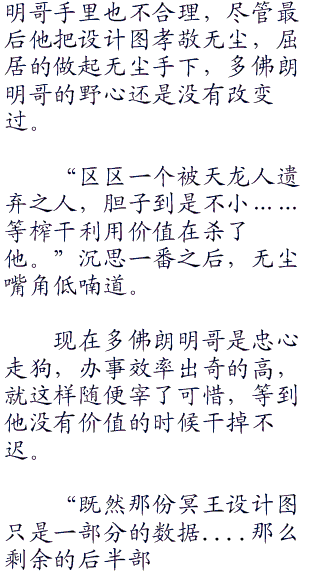 明哥手里也不合理，尽管最
后他把设计图孝敬无尘，屈
居的做起无尘手下，多佛朗
明哥的野心还是没有改变
过。
“区区一个被天龙人遗
弃之人，胆子到是不小……
等榨干利用价值在杀了
他。”沉思一番之后，无尘
嘴角低喃道。
现在多佛朗明哥是忠心
走狗，办事效率出奇的高，
就这样随便宰了可惜，等到
他没有价值的时候干掉不
迟。
“既然那份冥王设计图
只是一部分的数据....那么
剩余的后半部